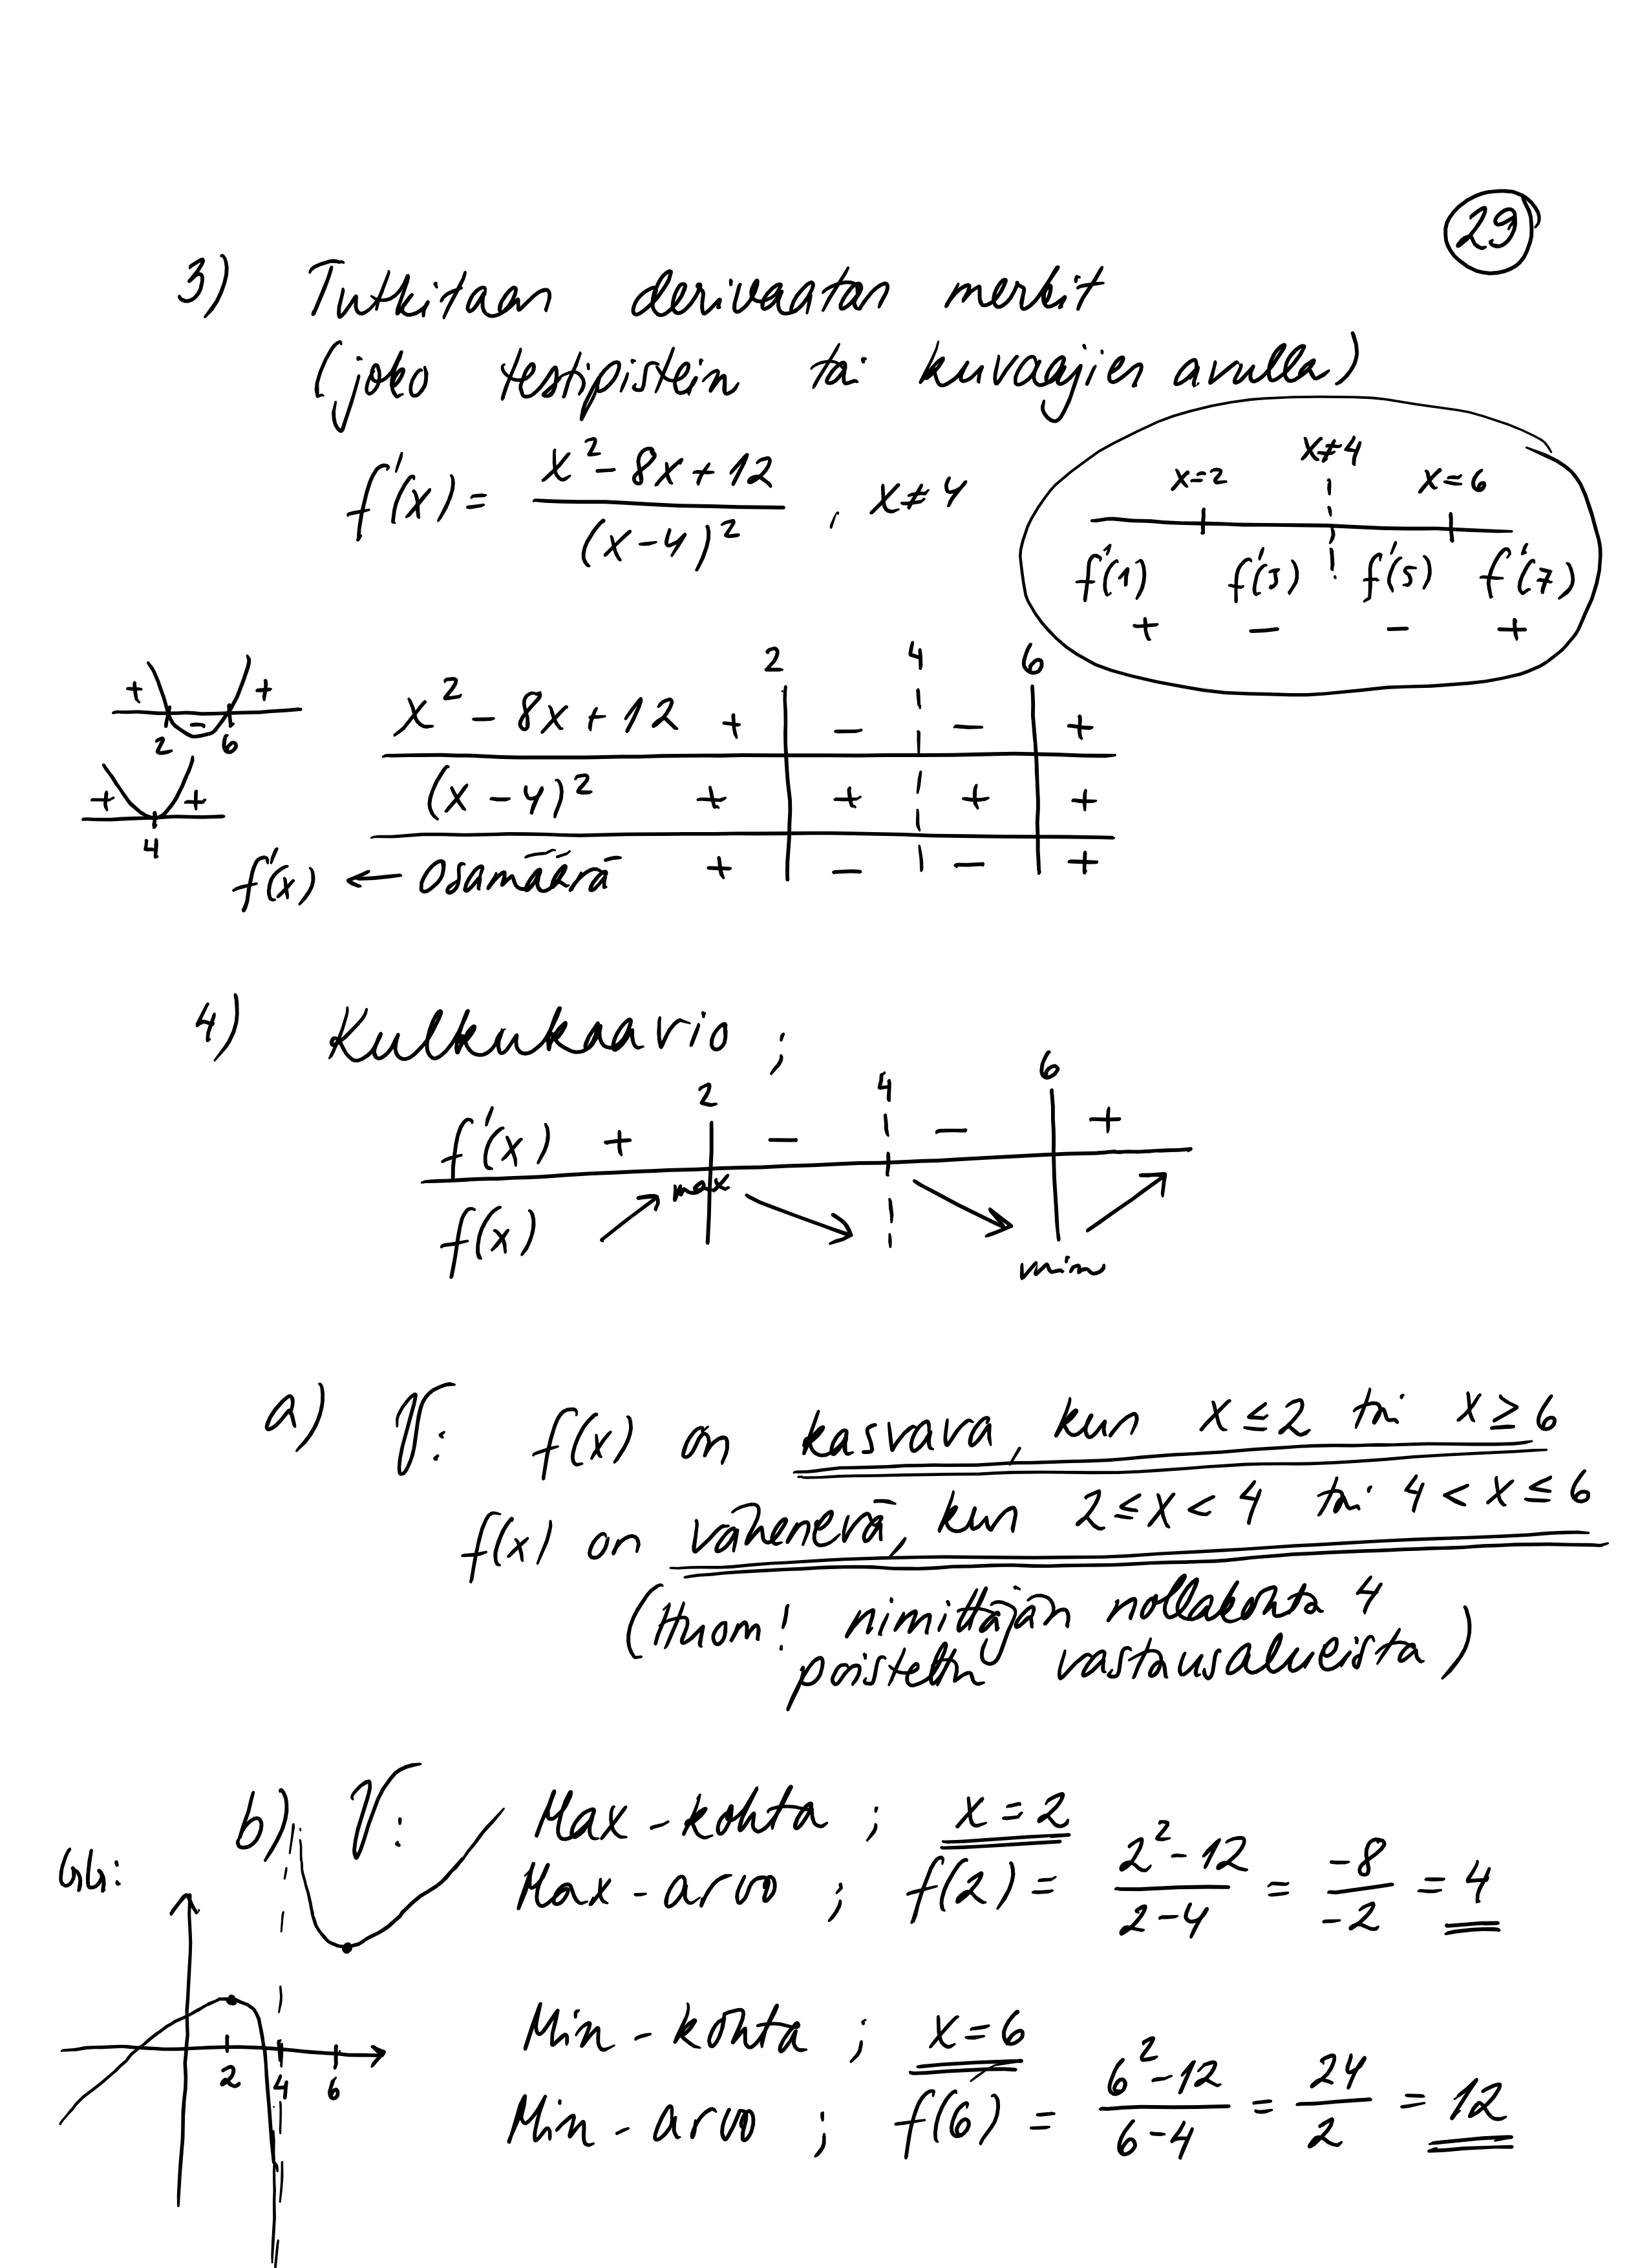 29
3) Tutkitaan derivaatan merkit
(joko testipistein tai kuvaajien avulla)
f'(x) = (x² - 8x + 12) / (x - 4)² , x ≠ 4
x=2 x≠4 x=6
f'(1) f'(3) f'(5) f'(7)
+ − − +
2 4 6
+ − +
2 6
x² - 8x + 12 + − − +
+ +
4
(x - 4)² + + + +
f'(x) ← Osamäärä + − − +
4) Kulkukaavio ;
2 4 6
f'(x) + − − +
f(x) ↗ max ↘ ↘ min ↗
a) V: f(x) on kasvava, kun x ≤ 2 tai x ≥ 6
f(x) on vähenevä, kun 2 ≤ x < 4 tai 4 < x ≤ 6
(Huom! nimittäjän nollakohta 4
poistettu vastausalueista)
b) V: Max - kohta ; x = 2
Max - arvo ; f(2) = (2² - 12) / (2 - 4) = -8 / -2 = 4
Min - kohta ; x = 6
Min - arvo ; f(6) = (6² - 12) / (6 - 4) = 24 / 2 = 12
2 4 6